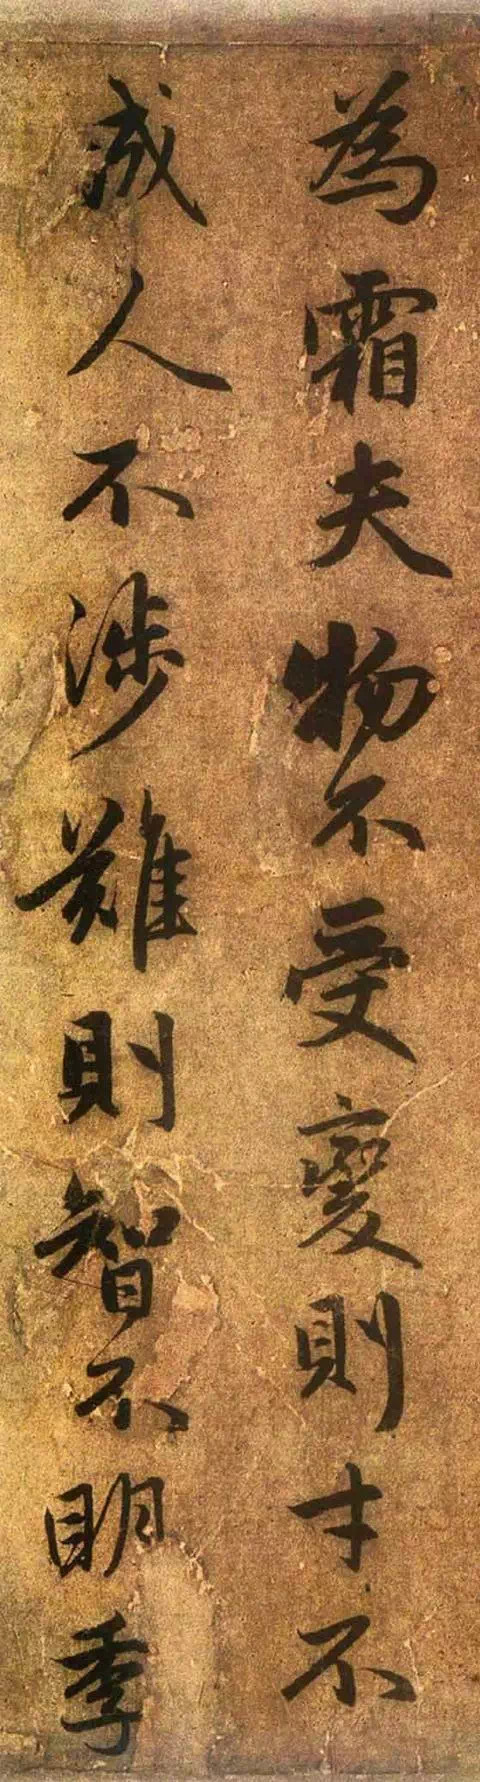 為霜夫物不受變則才不
成人不涉難則智不明季